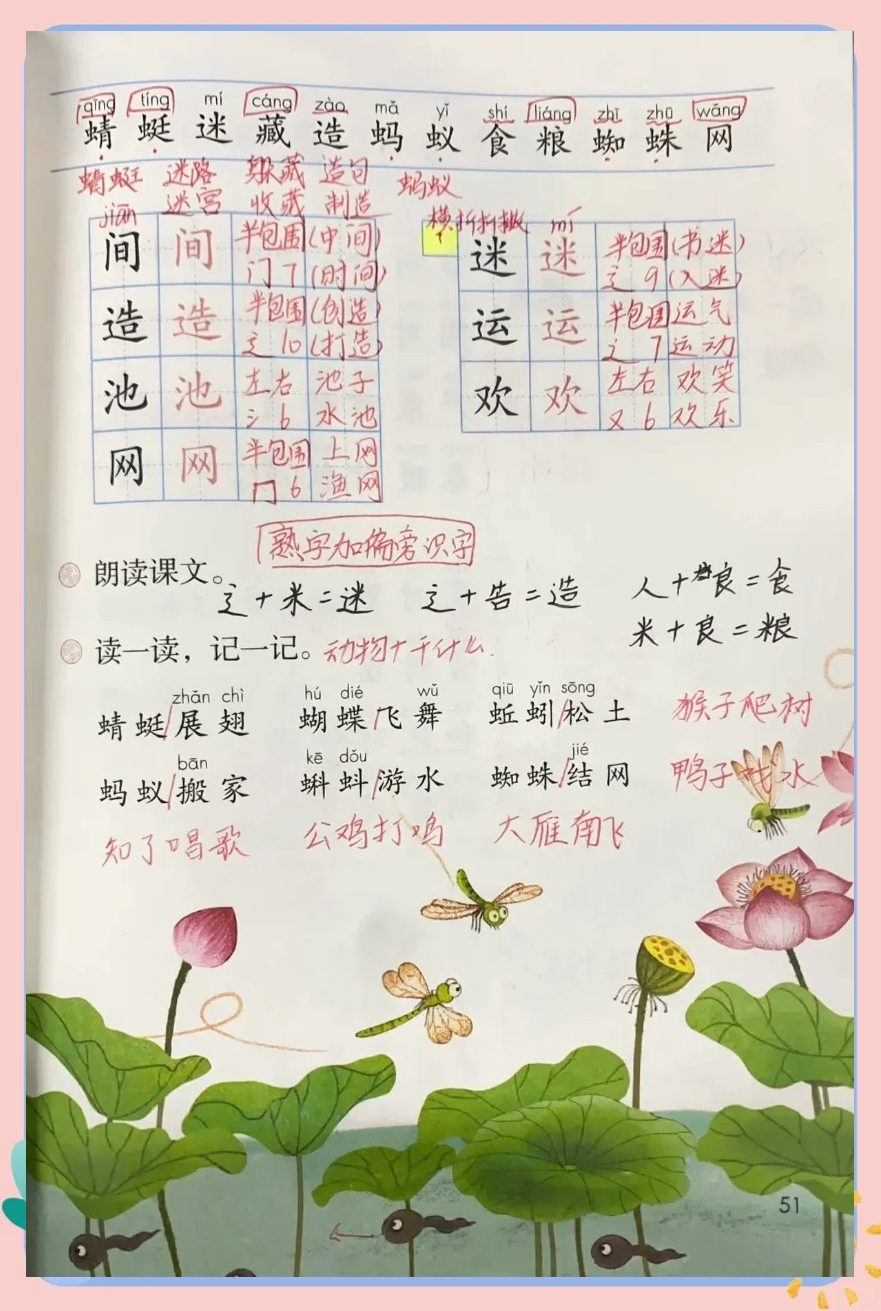 qīng tíng mí cáng zào mǎ yǐ shí liáng zhī zhū wǎng
蜻 蜓 迷 藏 造 蚂 蚁 食 粮 蜘 蛛 网
蜻蜓 迷路 躲藏 造句 蚂蚁
迷宫 收藏 制造
jiān
间 间 半包围 (中间)
门 7 (时间)
造 造 半包围 (创造)
辶 10 (打造)
池 池 左右 池子
氵 6 水池
网 网 半包围 上网
冂 6 渔网
横折折撇 mí
迷 迷 半包围 (书迷)
辶 9 (入迷)
运 运 半包围 运气
辶 7 运动
欢 欢 左右 欢笑
又 6 欢乐
熟字加偏旁识字
朗读课文。
辶+米=迷 辶+告=造 人+良=食
米+良=粮
读一读，记一记。动物+干什么.
zhǎn chì hú dié wǔ qiū yǐn sōng
蜻蜓/展翅 蝴蝶/飞舞 蚯蚓/松土 猴子爬树
bān kē dǒu jié
蚂蚁/搬家 蝌蚪/游水 蜘蛛/结网 鸭子戏水
知了唱歌 公鸡打鸣 大雁南飞
51